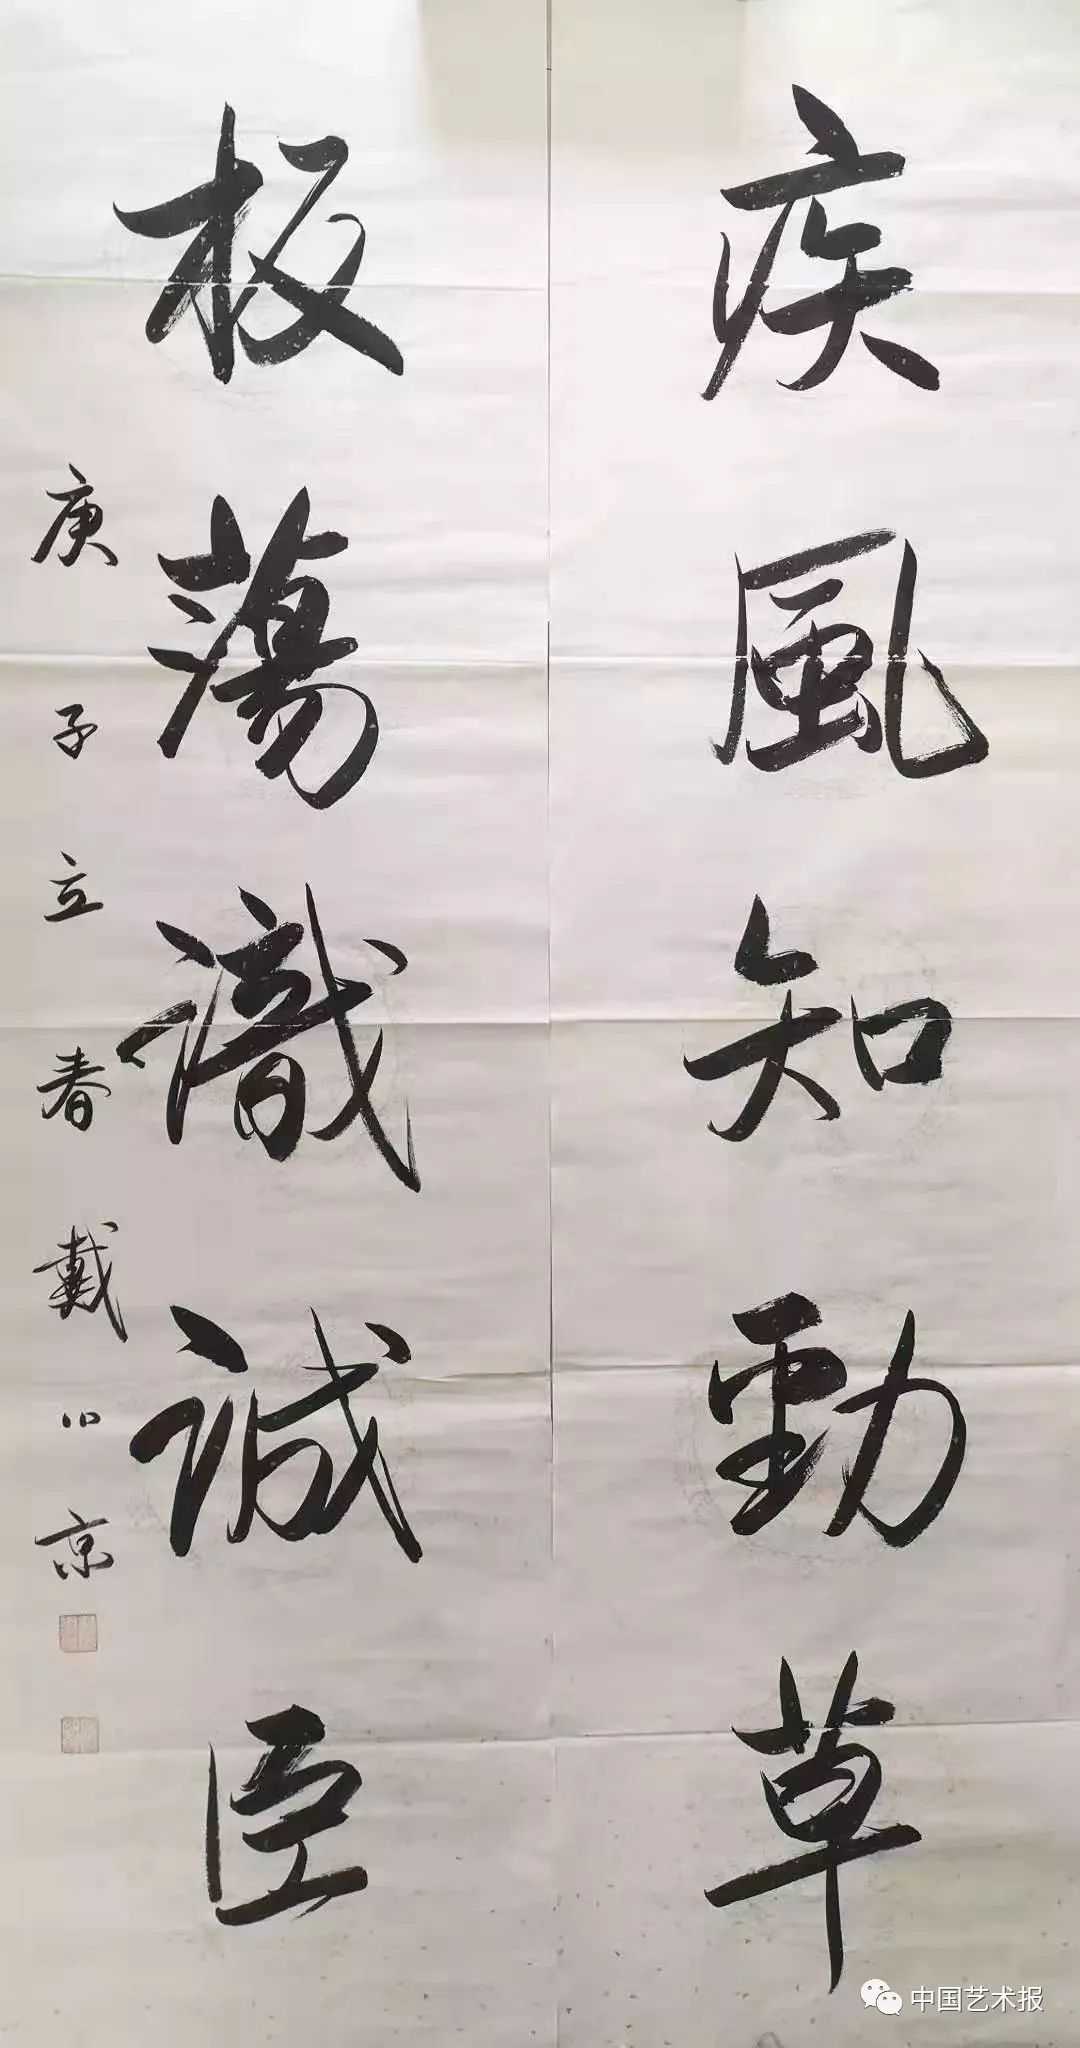 疾風知勁草
板蕩識誠臣
庚子立春戴小京
中国艺术报